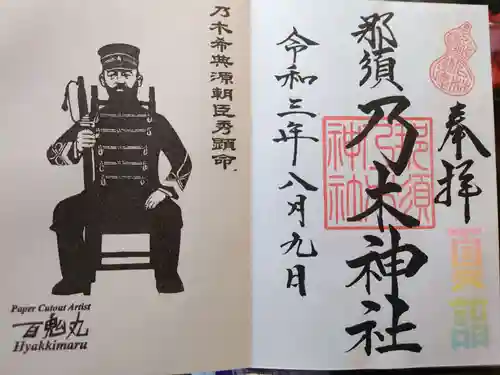 乃木希典源朝臣秀顕命
Paper Cutout Artist
百鬼丸
Hyakkimaru
奉拝
夏詣
那須乃木神社
那須乃木神社
令和三年八月九日